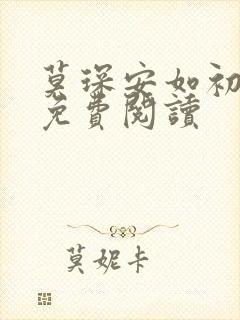 莫琛安如初
免費閱讀
莫妮卡